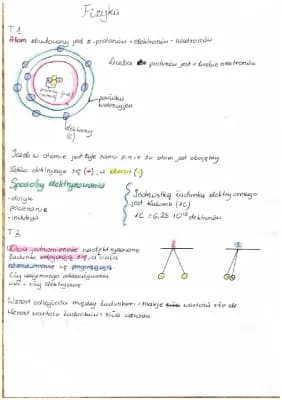 Fizyka
T.1
Atom zbudowany jest z protonów - elektronów - neutronów
Liczba protonów jest = liczbie neutronów
powłoki
elektrony
(e)
Jeżeli w atomie jest tyle samo p.n.e to atom jest obojętny
Szkło elektryzuje się (+), a ebonit (-)
Sposoby elektryzowania
- dotyk
- pocieranie
- indukcja
Jednostką ładunku elektrycznego
jest kulomb (1C)
1C = 6,25 · 10¹⁸ elektronów
T.2
Dwa jednoimiennie naelektryzowane
ładunki odpychają się, a
różnoimienne się przyciągają
Siły wzajemnego oddziaływania
Wzrost odległości między ładunkami - maleje wartość
Wzrost wartości ładunków - siła wzrasta